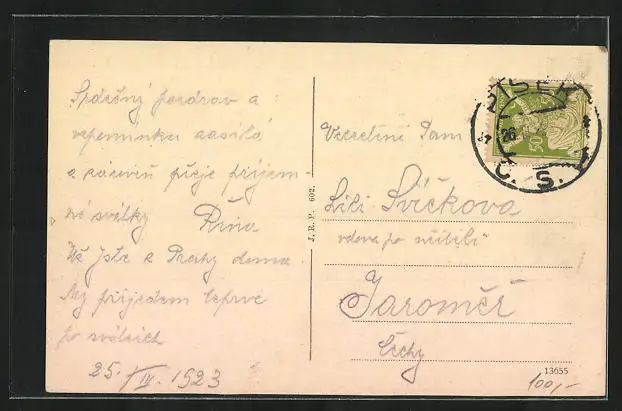 Srdečný pozdrav a
vzpomínku zasílá
a zároveň přeje příjem-
né svátky Řína
Už jste z Prahy doma
My přijedem teprve
po svátcích
25./IV. 1923
J. E. P. 602.
PÍSEK
26
Č. S.
50
Vzácná Paní
Lili Svíčkova
vdova po učiteli
Jaroměř
Čechy
13655
100,-